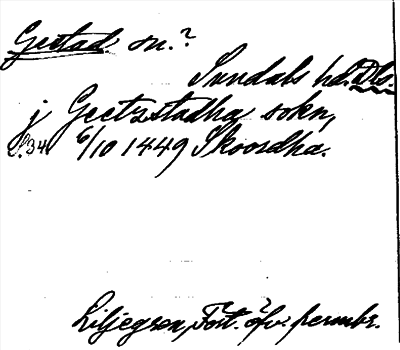 Gestad sn.?
Sundals hd. Dls.
j Geetzstadha sokn,
S.34 6/10 1449 Skoordha.
Liljegren, Fört. öfv. permbr.